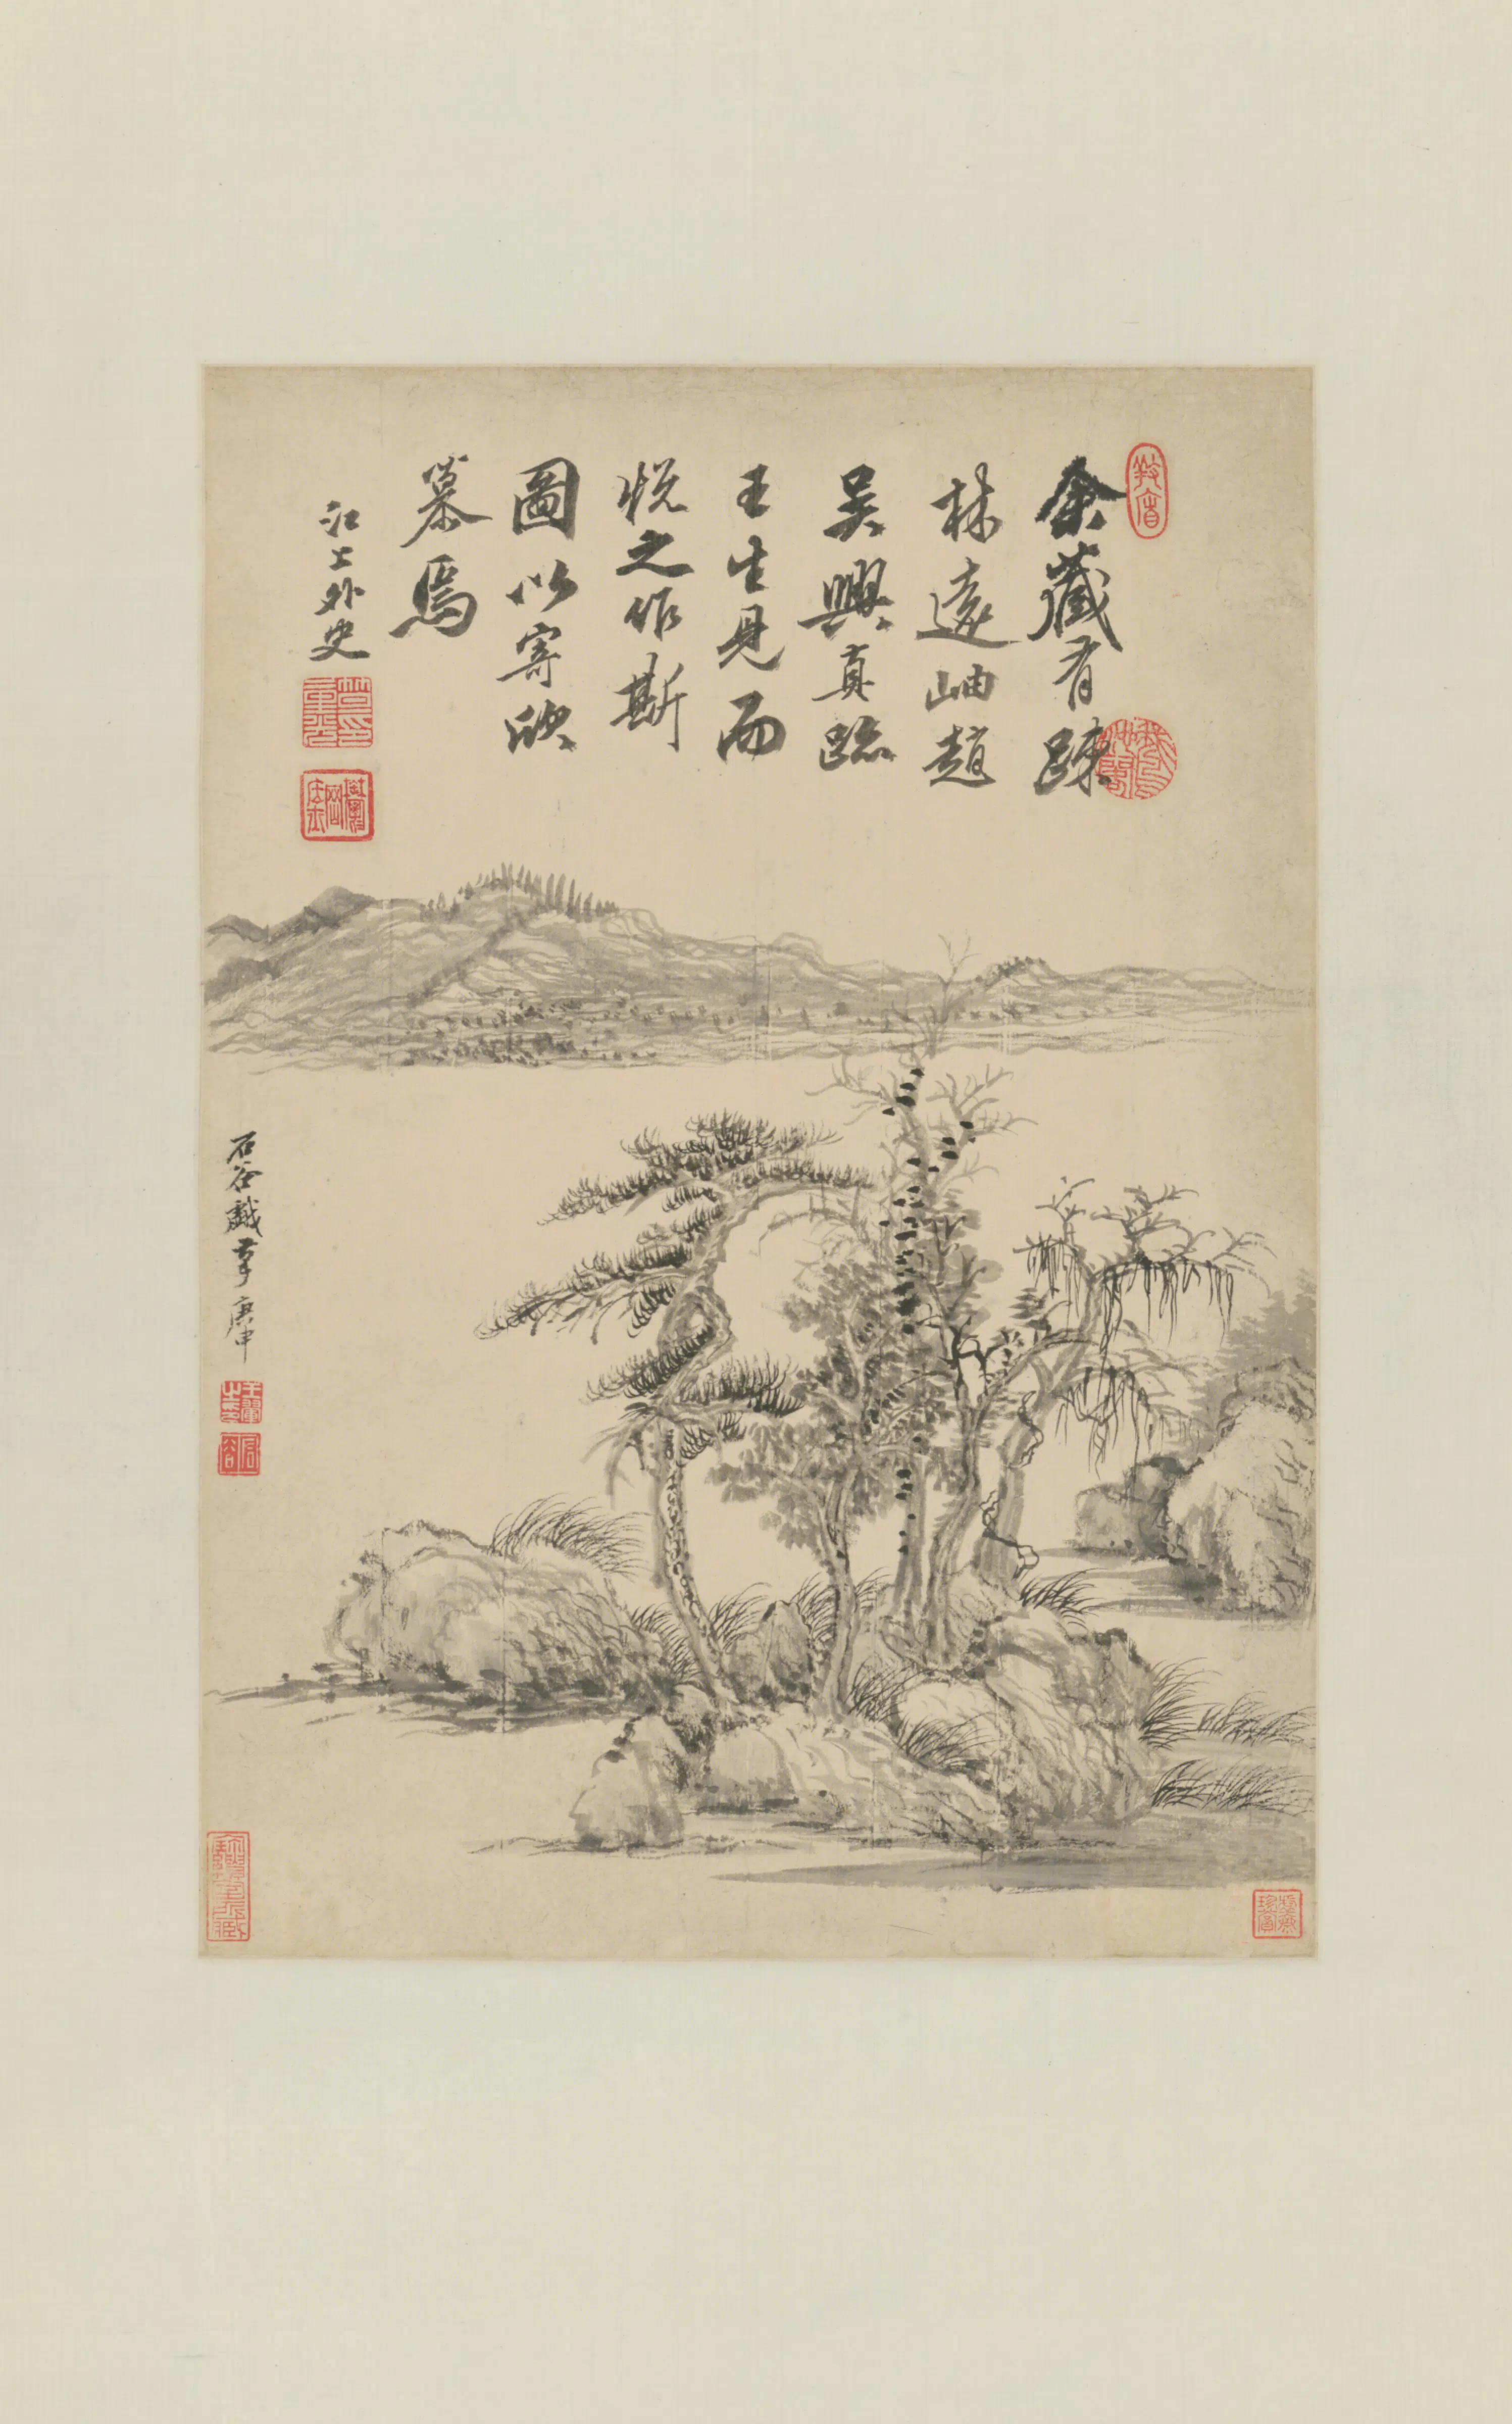 余藏有疎
林遠岫趙
吳興真跡
王生見而
悅之作斯
圖以寄欣
慕焉
江上外史
石谷戲筆庚申